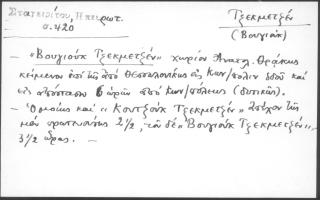 Σταγειρίτου, Ηπειρωτ.
σ. 420
Τζεκμετζέν
(Βουγιούκ)
— "Βουγιούκ Τζεκμετζέν" χωρίον Ανατ. Θράκης
κείμενον επί της από Θεσσαλονίκης εις Κων/πολιν οδού και
εις απόστασιν 6 ωρών από Κων/πόλεως (δυτικώς).
— Ομοίως και "Κουτζούκ Τζεκμετζέν" απέχον της
μεν πρωτευούσης 2½, του δε "Βουγιούκ Τζεκμετζέν",
3½ ώρας. —